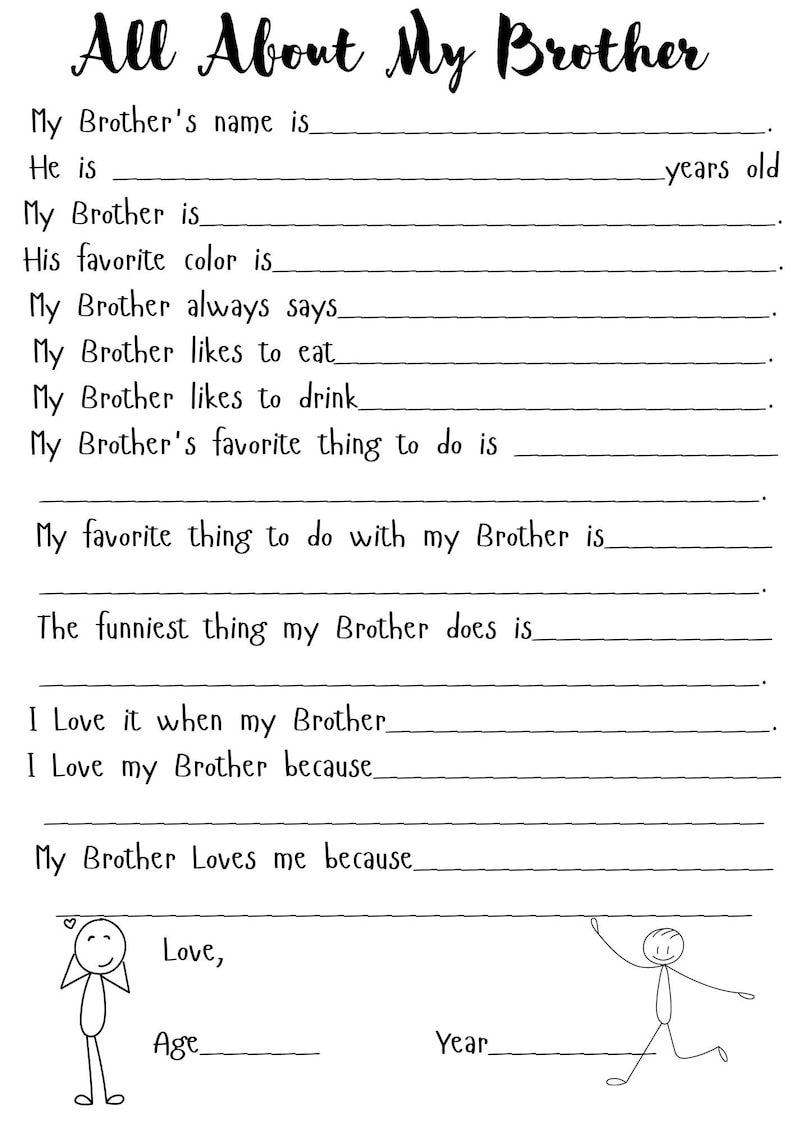 All About My Brother
My Brother's name is____________________.
He is ____________________years old
My Brother is____________________.
His favorite color is____________________.
My Brother always says____________________.
My Brother likes to eat____________________.
My Brother likes to drink____________________.
My Brother's favorite thing to do is ____________________
____________________.
My favorite thing to do with my Brother is____________________
____________________.
The funniest thing my Brother does is____________________
____________________.
I Love it when my Brother____________________.
I Love my Brother because____________________
____________________
My Brother Loves me because____________________
____________________
Love,
Age__________ Year__________